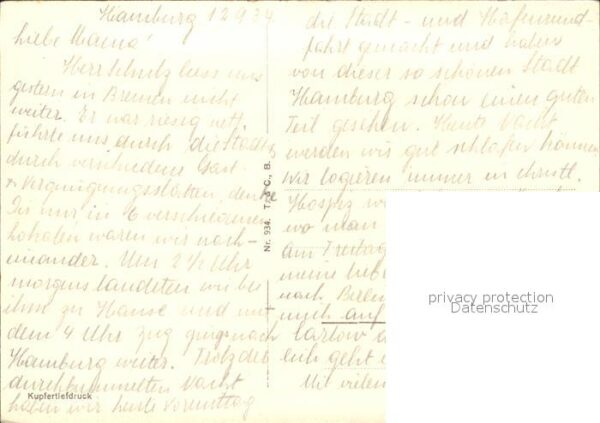 Hamburg 12.9.34.
Liebe Mama!
Herr Schulz liess uns
gestern in Bremen nicht
weiter. Er war riesig nett,
führte uns durch die Stadt,
durch verschiedene Gast-
+ Vergnügungsstätten, denke
Dir nur in 6 verschiedenen
Lokalen waren wir nach-
einander. Um 2 1/2 Uhr
morgens landeten wir bei
ihm zu Hause und mit
dem 4 Uhr Zug ging's nach
Hamburg weiter. Trotz der
durchbummelten Nacht
haben wir heute Vormittag
Kupfertiefdruck
Nr. 934. T. & C., B.
die Stadt- und Hafenrund-
fahrt gemacht und haben
von dieser so schönen Stadt
Hamburg schon einen guten
Teil gesehen. Heute Nacht
werden wir gut schlafen können,
wir logieren immer in christl.
Hospiz
wo man
Am Freitag
meine
nach Berlin
mich auf
lich geht
Mit vielen
privacy protection
Datenschutz